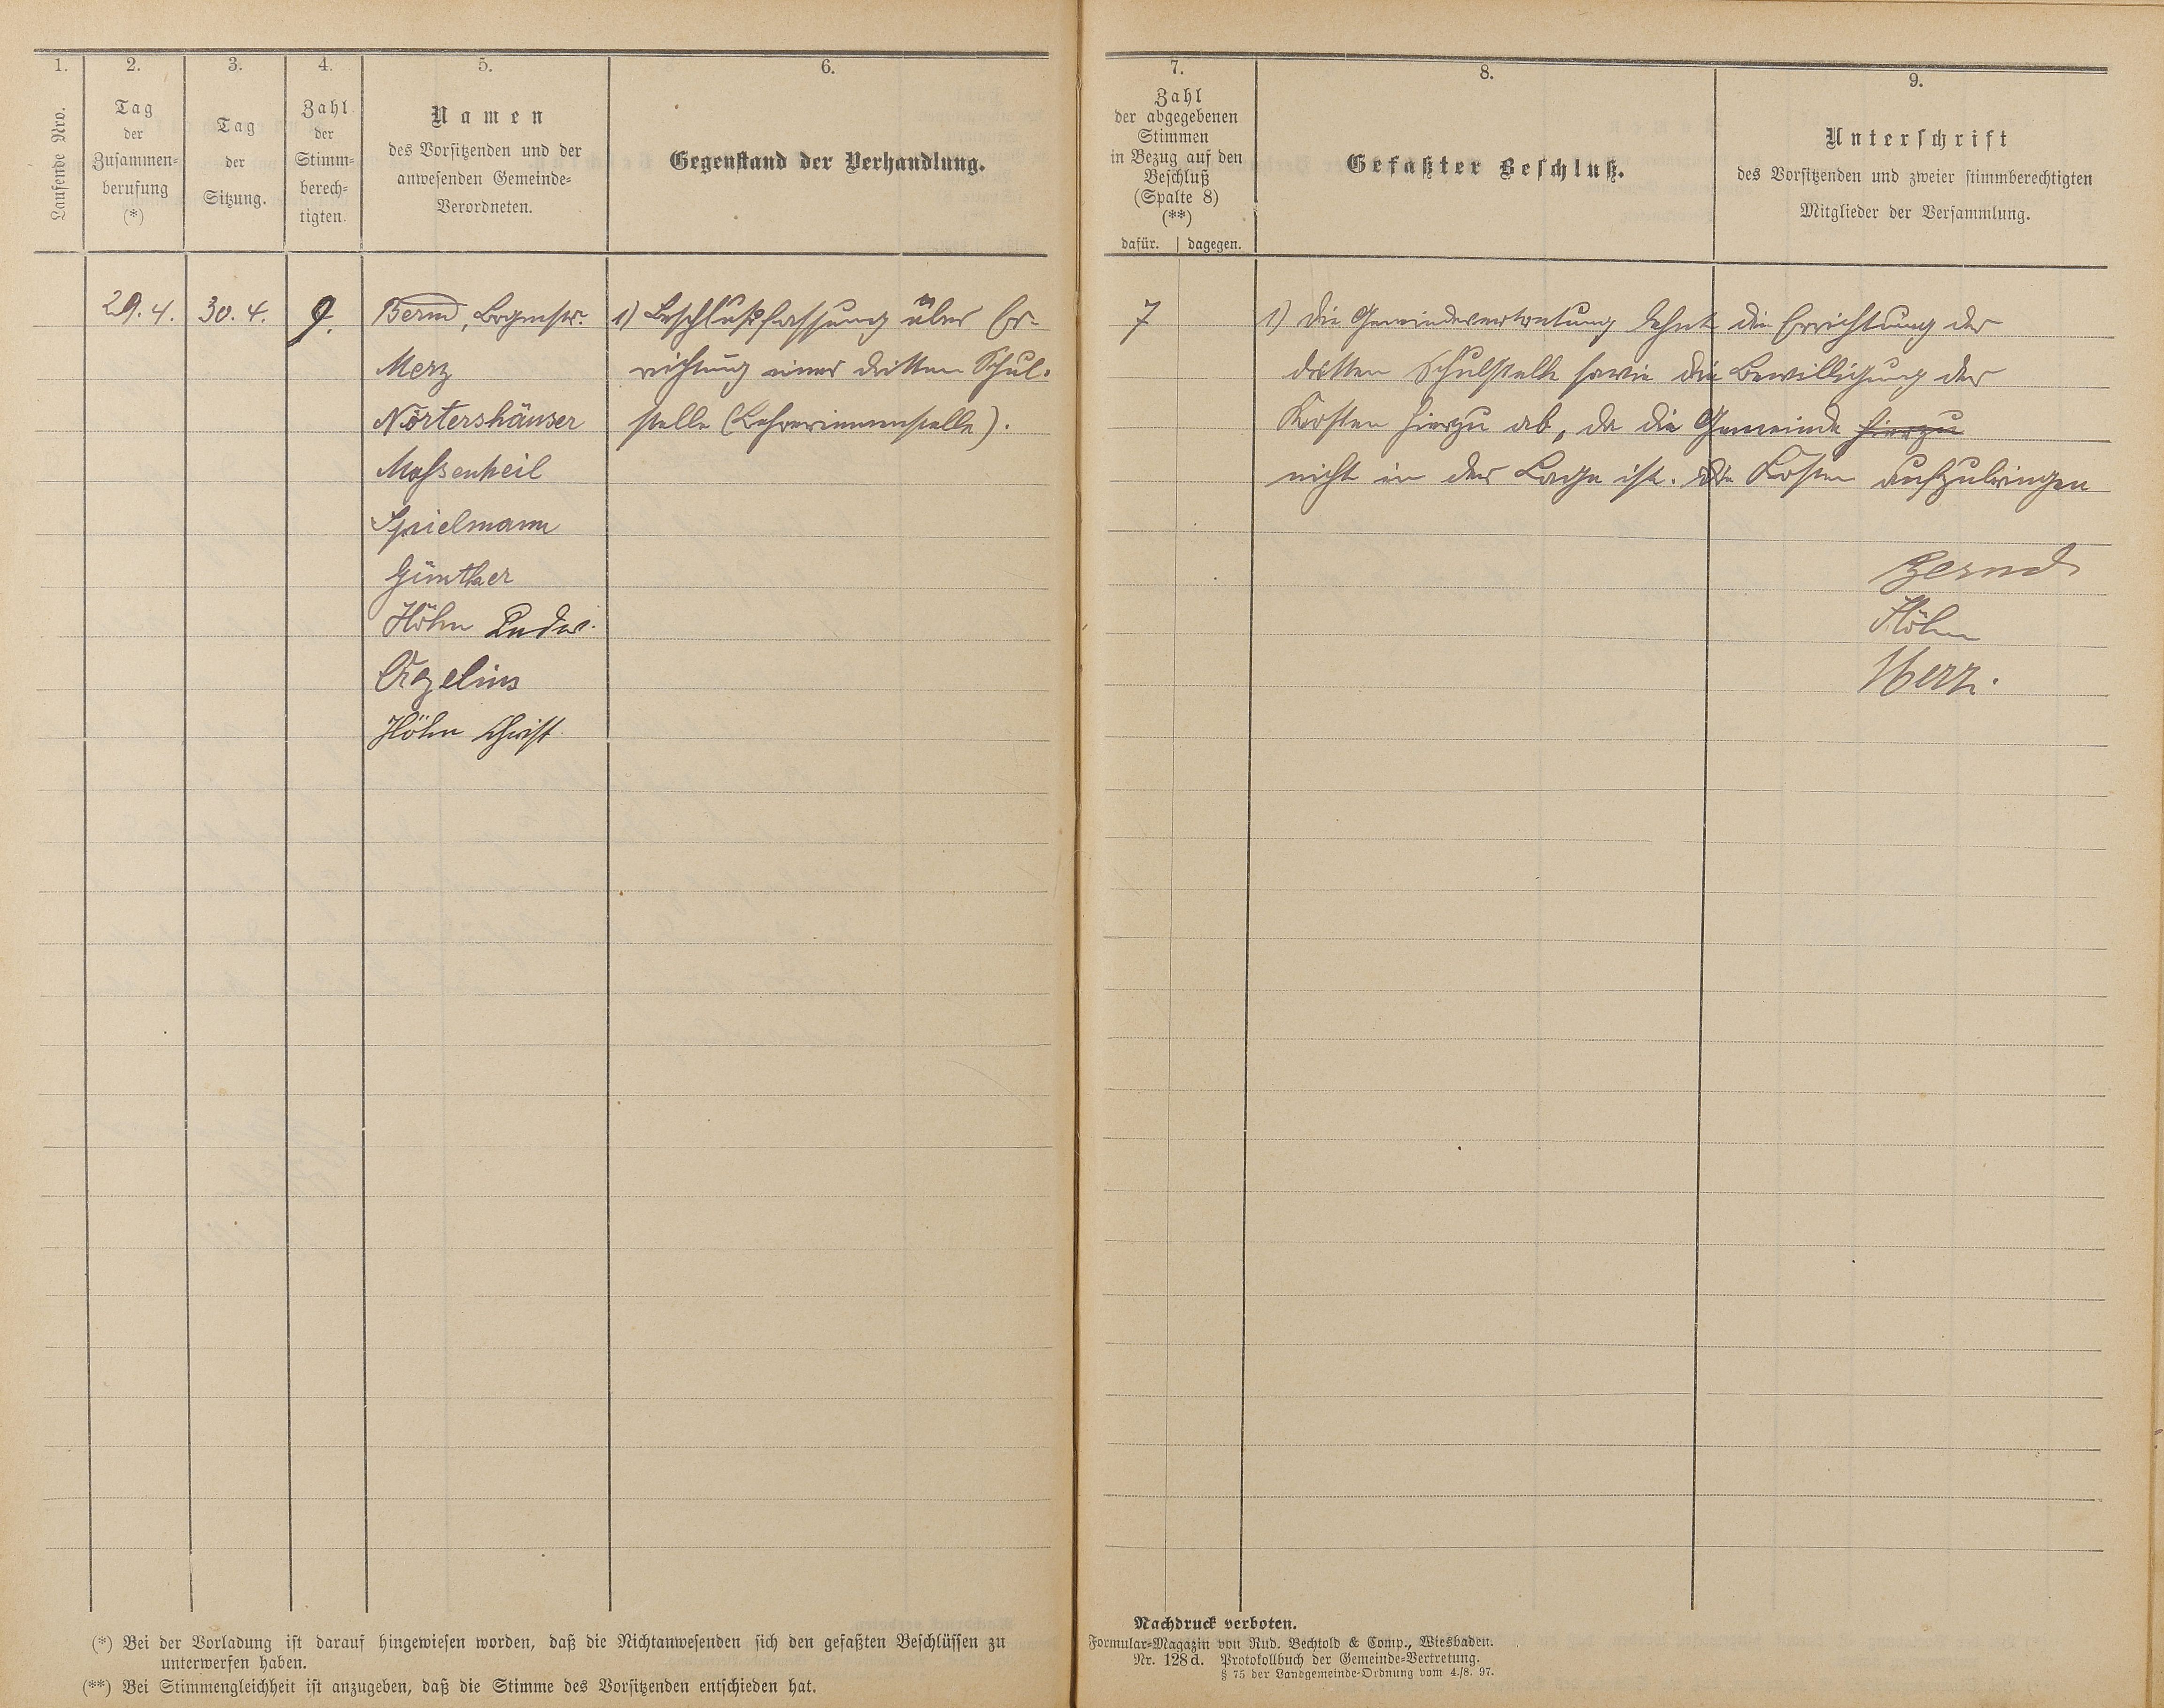 1.
Laufende Nro.
2.
Tag
der
Zusammen-
berufung
(*)
3.
Tag
der
Sitzung.
4.
Zahl
der
Stimm-
berech-
tigten.
5.
Namen
des Vorsitzenden und der
anwesenden Gemeinde-
Verordneten.
6.
Gegenstand der Verhandlung.
7.
Zahl
der abgegebenen
Stimmen
in Bezug auf den
Beschluß
(Spalte 8)
(**)
dafür. | dagegen.
8.
Gefaßter Beschluß.
9.
Unterschrift
des Vorsitzenden und zweier stimmberechtigten
Mitglieder der Versammlung.
29.4.
30.4.
9.
Bernd, Brgmstr.
Merz
Nörtershäuser
Massenkeil
Spielmann
Günther
Höhn Ludw.
Höhn Christ.
1) Beschlußfassung über Er-
richtung einer dritten Schul-
stelle (Lehrerinnenstelle).
7
1) Die Gemeindevertretung lehnt die Errichtung der
dritten Schulstelle sowie die Bewilligung der
Kosten hierzu ab, da die Gemeinde hierzu
nicht in der Lage ist. die Kosten aufzubringen
Bernd
Höhn
Merz.
(*) Bei der Vorladung ist darauf hingewiesen worden, daß die Nichtanwesenden sich den gefaßten Beschlüssen zu
unterwerfen haben.
(**) Bei Stimmengleichheit ist anzugeben, daß die Stimme des Vorsitzenden entschieden hat.
Nachdruck verboten.
Formular-Magazin von Rud. Bechtold & Comp., Wiesbaden.
Nr. 128d. Protokollbuch der Gemeinde-Vertretung.
§ 75 der Landgemeinde-Ordnung vom 4./8. 97.